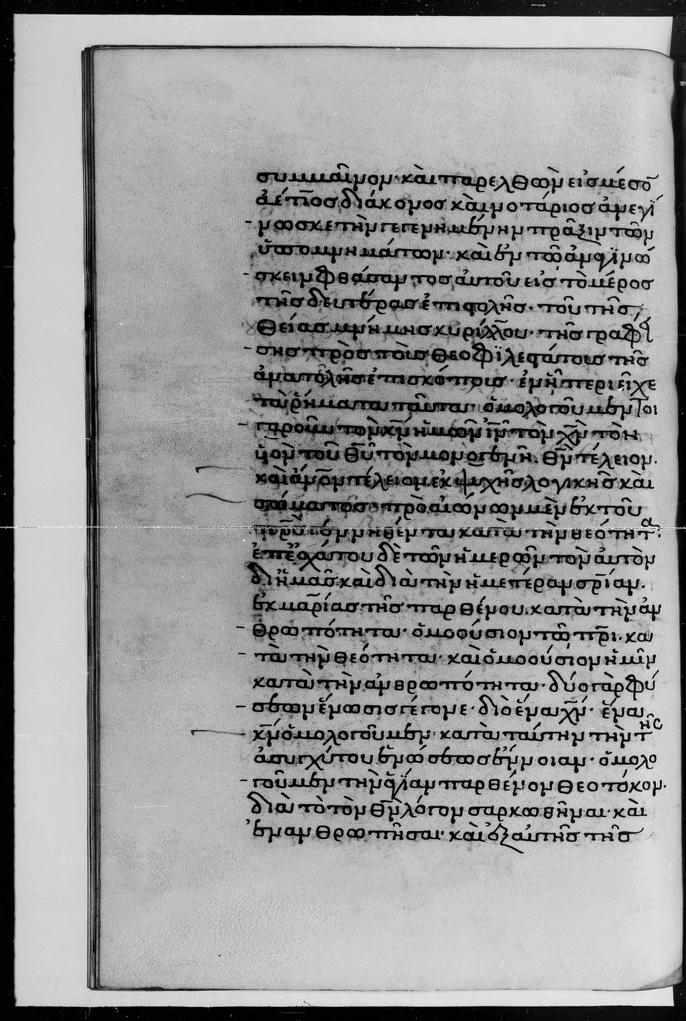 συμμαῖνον· καὶ παρελθὼν εἰς μέσο̅
ἀέτιος διάκονος καὶ νοτάριος ἀνεγί
νωσκε τὴν γεγενημένην πρᾶξιν τῶν
ὑπομνημάτων· καὶ ἐν τῶ ἀναγινώ
σκειν φθάσαντος αὐτοῦ εἰς τὸ μέρος
τῆς δευτέρας ἐπιστολῆς· τοῦ τῆς
θείας μνήμης κυρίλλου· τῆς γραφεί
σης πρὸς τοὺς θεοφιλεστάτους τῆς
ἀνατολῆς ἐπισκόπους· ἐν ἧπερ εἶχε
τὰ ῥήματα ταῦτα· ὁμολογοῦμεν τοι
γαροῦν τὸν κ̅ν̅ ἡμῶν ι̅ν̅ τὸν χ̅ν̅ τὸν
υἱὸν τοῦ θ̅υ̅ τὸν μονογενῆ· θ̅ν̅ τέλειον·
καὶ α̅ν̅ο̅ν̅ τέλειον ἐκ ψυχῆς λογικῆς καὶ
σώματος· πρὸ αἰώνων μὲν ἐκ τοῦ
π̅ρ̅σ̅ γεννηθέντα κατὰ τὴν θεότητα·
ἐπ' ἐσχάτου δὲ τῶν ἡμερῶν τὸν αὐτὸν
δι' ἡμᾶς καὶ διὰ τὴν ἡμετέραν σ̅ρ̅ίαν·
ἐκ μαρίας τῆς παρθένου κατὰ τὴν ἀν
θρωπότητα· ὁμοούσιον τῶ π̅ρ̅ι̅· κα
τὰ τὴν θεότητα· καὶ ὁμοούσιον ἡμῖν
κατὰ τὴν ἀνθρωπότητα· δύο γὰρ φύ
σεων ἕνωσις γέγονε· διὸ ἕνα χ̅ν̅· ἕνα
κ̅ν̅ ὁμολογοῦμεν· κατὰ ταύτην τὴν τῆς
ἀσυγχύτου ἑνώσεως ἔννοιαν· ὁμολο
γοῦμεν τὴν ἁγίαν παρθένον θεοτόκον·
διὰ τὸ τὸν θ̅ν̅ λόγον σαρκωθῆναι· καὶ
ἐνανθρωπῆσαι· καὶ ἐξ αὐτῆς τῆς